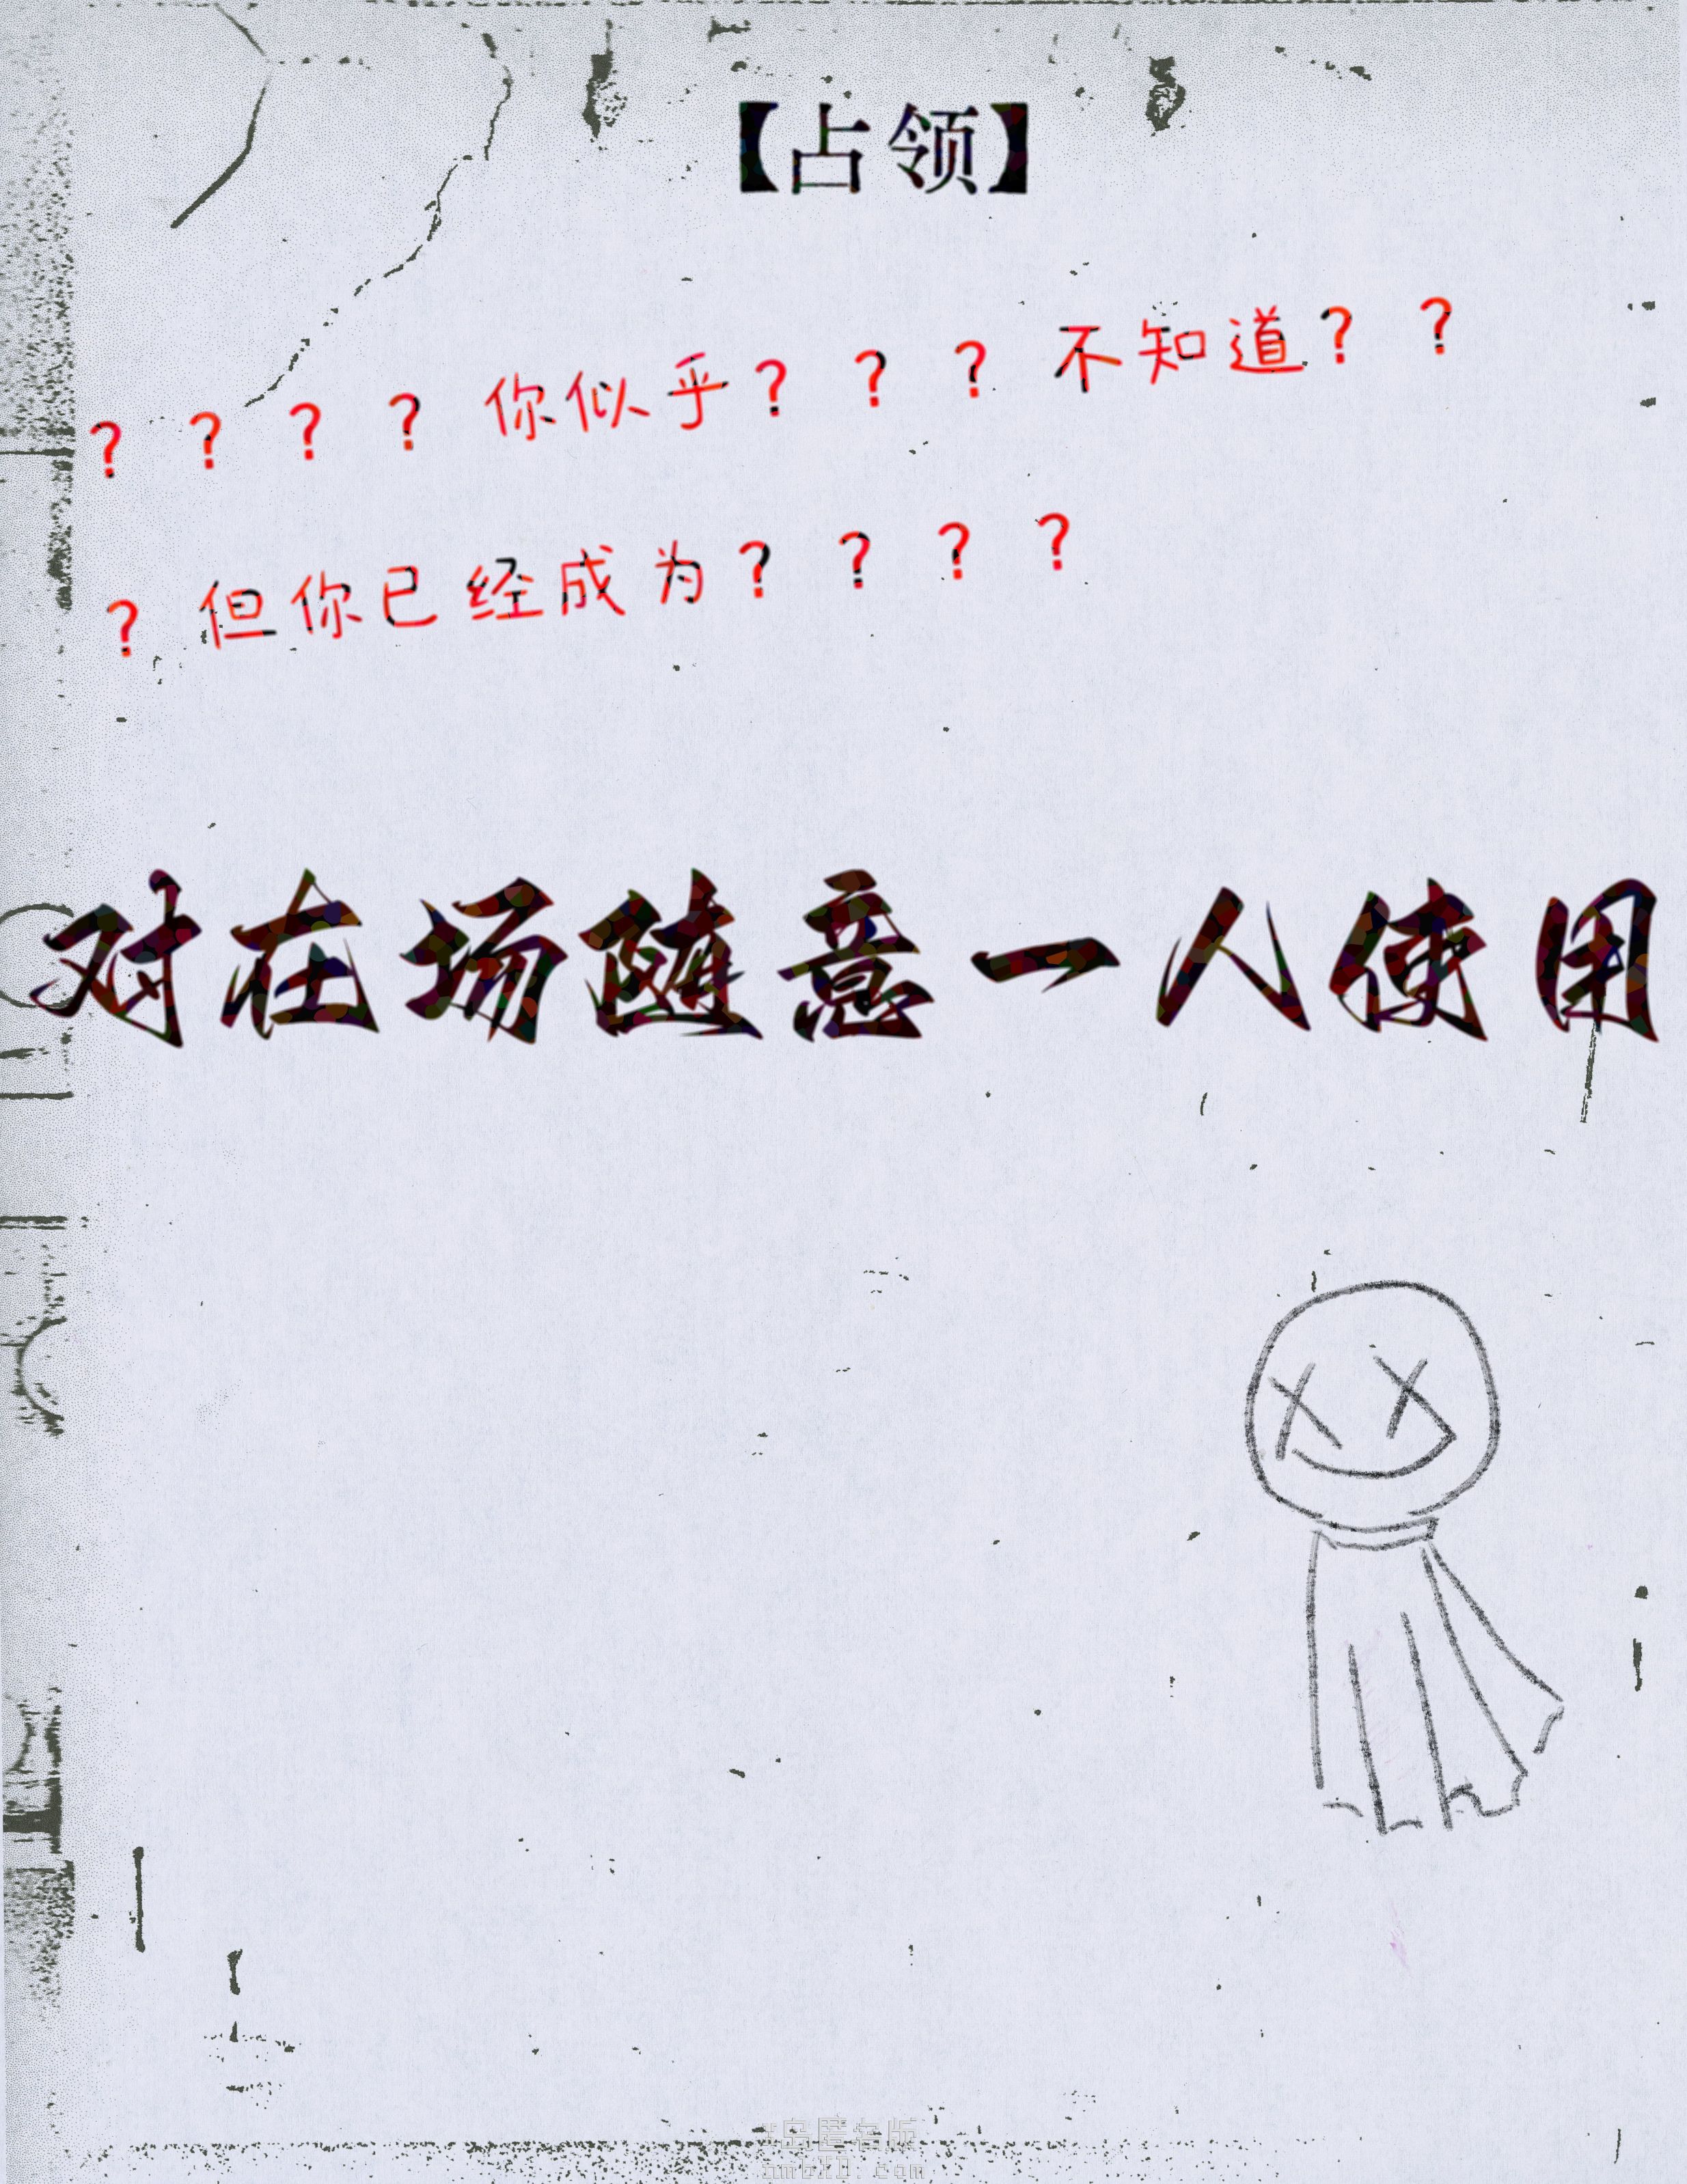 【占领】
？？？？你似乎？？？不知道？？
？但你已经成为？？？？
对在场随意一人使用
岛匿名版